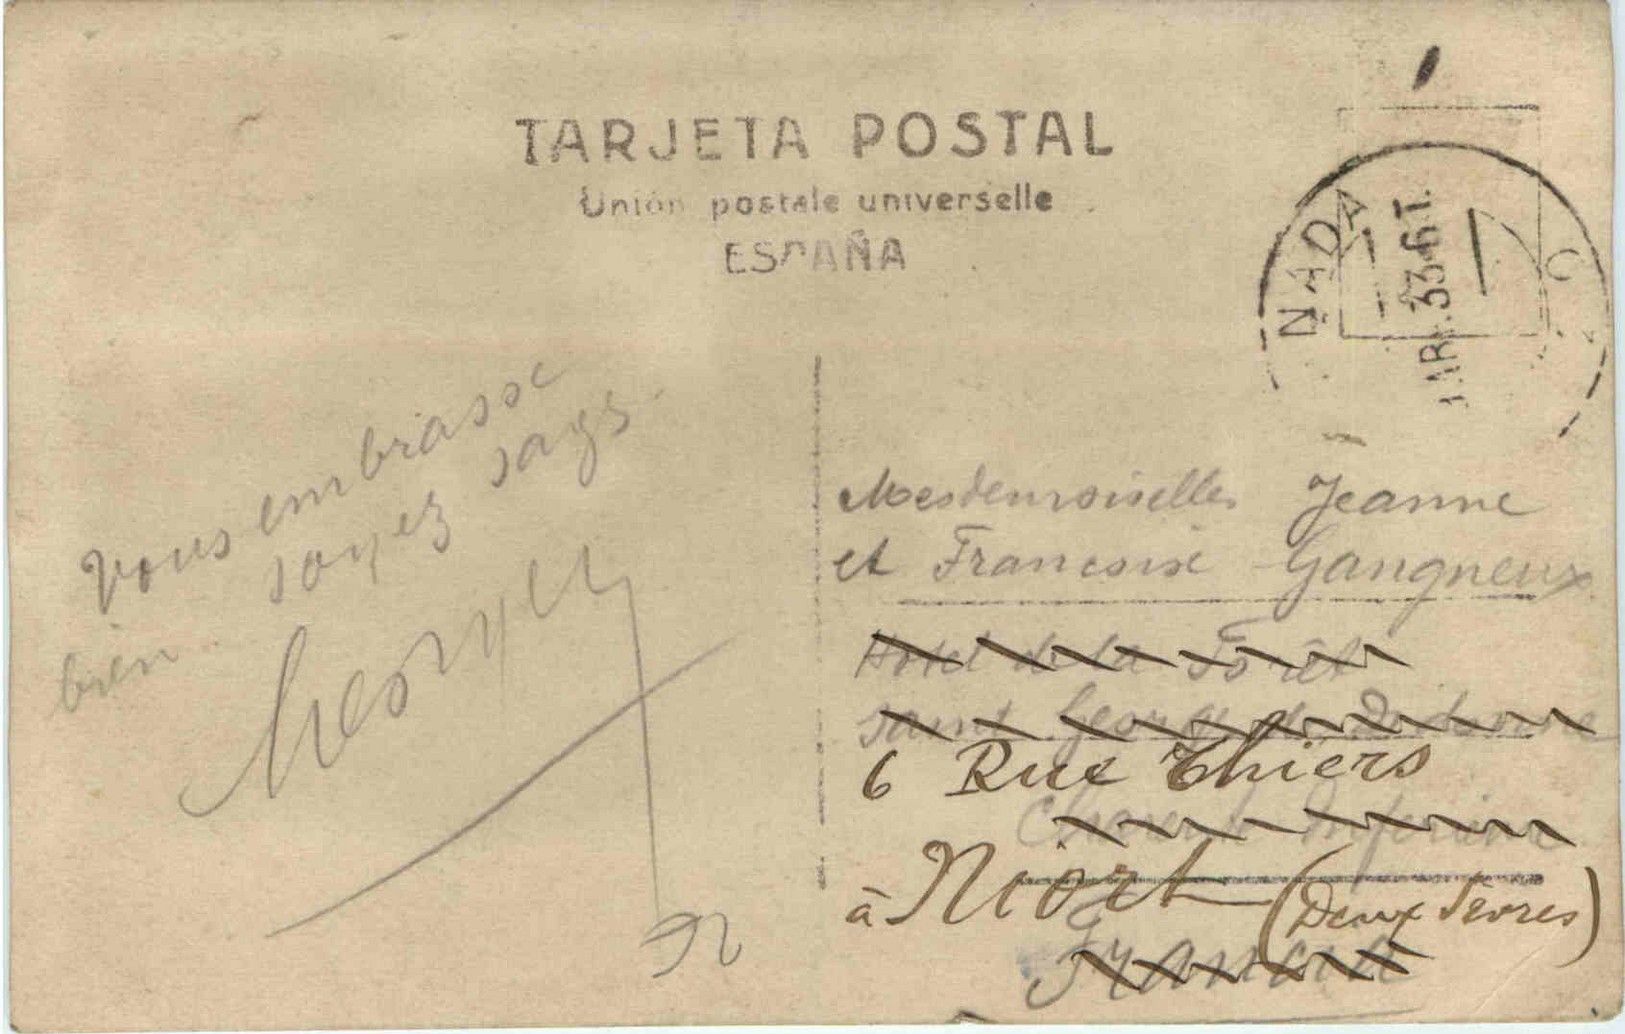 TARJETA POSTAL
Unión postale universelle
ESPAÑA
NADA
33·6T.
vous embrasse
soyez sags
bien.
Georges
Mesdemoiselles Jeanne
et Francoise Gangneux
Hotel de la Forêt
Saint Georges de Didonne
6 Rue Thiers
Charente Inferieure
à Niort (Deux Sèvres)
France